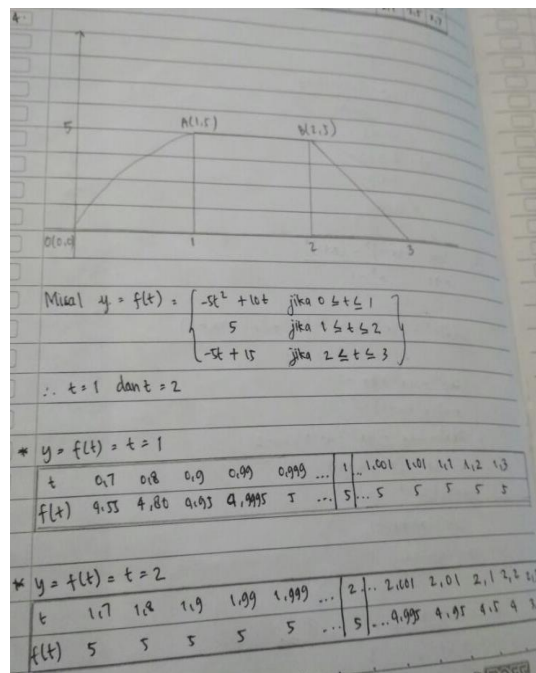 4.
5 A(1,5) B(2,5)
O(0,0) 1 2 3
Misal y = f(t) = { -5t² + 10t jika 0 ≤ t ≤ 1
5 jika 1 ≤ t ≤ 2
-5t + 15 jika 2 ≤ t ≤ 3 }
∴ t = 1 dan t = 2
* y = f(t) = t = 1
t 0,7 0,8 0,9 0,99 0,999 ... 1 ... 1,001 1,01 1,1 1,2 1,3
f(t) 4,55 4,80 4,95 4,9995 5 ... 5 ... 5 5 5 5 5
* y = f(t) = t = 2
t 1,7 1,8 1,9 1,99 1,999 ... 2 ... 2,001 2,01 2,1 2,2
f(t) 5 5 5 5 5 ... 5 ... 4,995 4,95 4,5 4